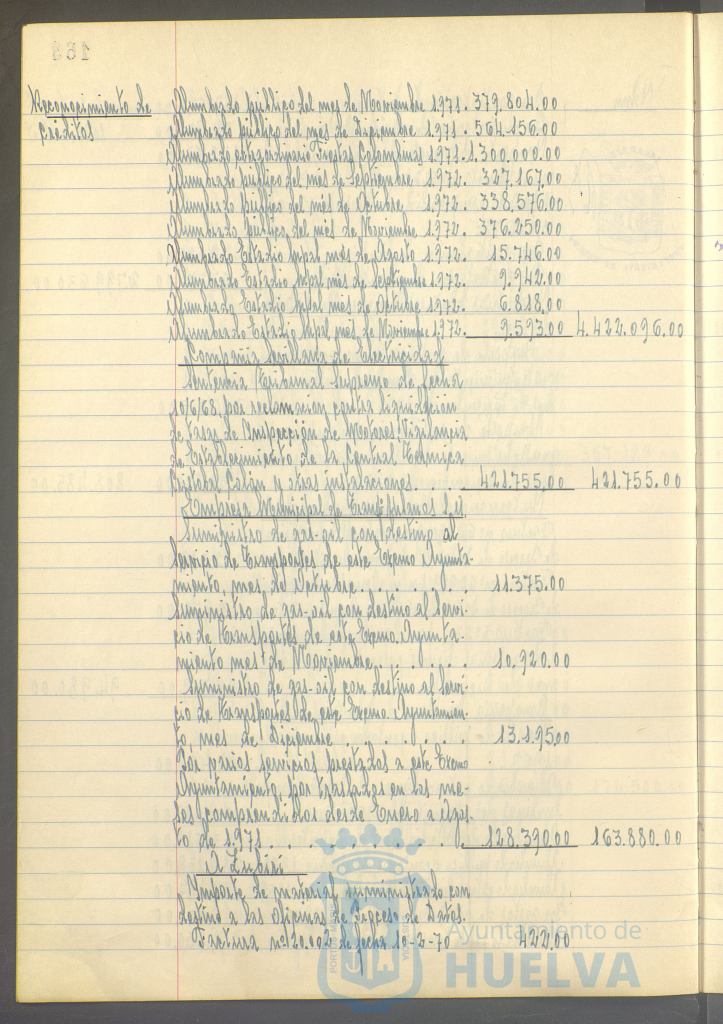 Reconocimiento de
Créditos
Alumbrado público del mes de Noviembre 1.971. 379.804.00
Alumbrado público del mes de Diciembre 1.971. 564.156.00
Alumbrado extraordinario Fiestas Colombinas 1971. 1.300.000.00
Alumbrado público del mes de Septiembre 1.972. 327.167.00
Alumbrado público del mes de Octubre 1.972. 338.576.00
Alumbrado público del més de Noviembre 1.972. 376.250.00
Alumbrado Estadio mpal mes de Agosto 1.972. 15.746.00
Alumbrado Estadio mpal mes de Septiembre 1.972. 9.942.00
Alumbrado Estadio mpal mes de Octubre 1.972. 6.818.00
Alumbrado Estadio mpal mes de Noviembre 1.972. 9.593.00 4.422.096.00
Compañía Sevillana de Electricidad
Sentencia Tribunal Supremo de fecha
10/6/68, por reclamacion contra liquidación
de tasas de Inspección de Motores, Vigilancia
de Establecimiento de la Central Termica
Cristobal Colón y otras instalaciones. 421.755,00 421.755.00
Empresa Municipal de
Suministro de gas-oil con destino al
Servicio de Transportes de este Excmo Ayunta-
miento, mes de Octubre 11.375.00
Suministro de gas-oil con destino al Servi-
cio de Transportes de este Excmo. Ayunta-
miento mes de Noviembre 10.920.00
Suministro de gas-oil con destino al Servi-
cio de Transportes de este Excmo. Ayuntamien-
to, mes de Diciembre 13.195,00
Por varios servicios prestados a este Excmo
Ayuntamiento, por traslados en los me-
ses comprendidos desde Enero a Agos-
to de 1.971 128.390.00 163.880.00
A Lubiri
Importe de material suministrado con
destino a las oficinas de Proceso de Datos.
Factura nº 20.002 de fecha 10-2-70 422.00
Ayuntamiento de
HUELVA